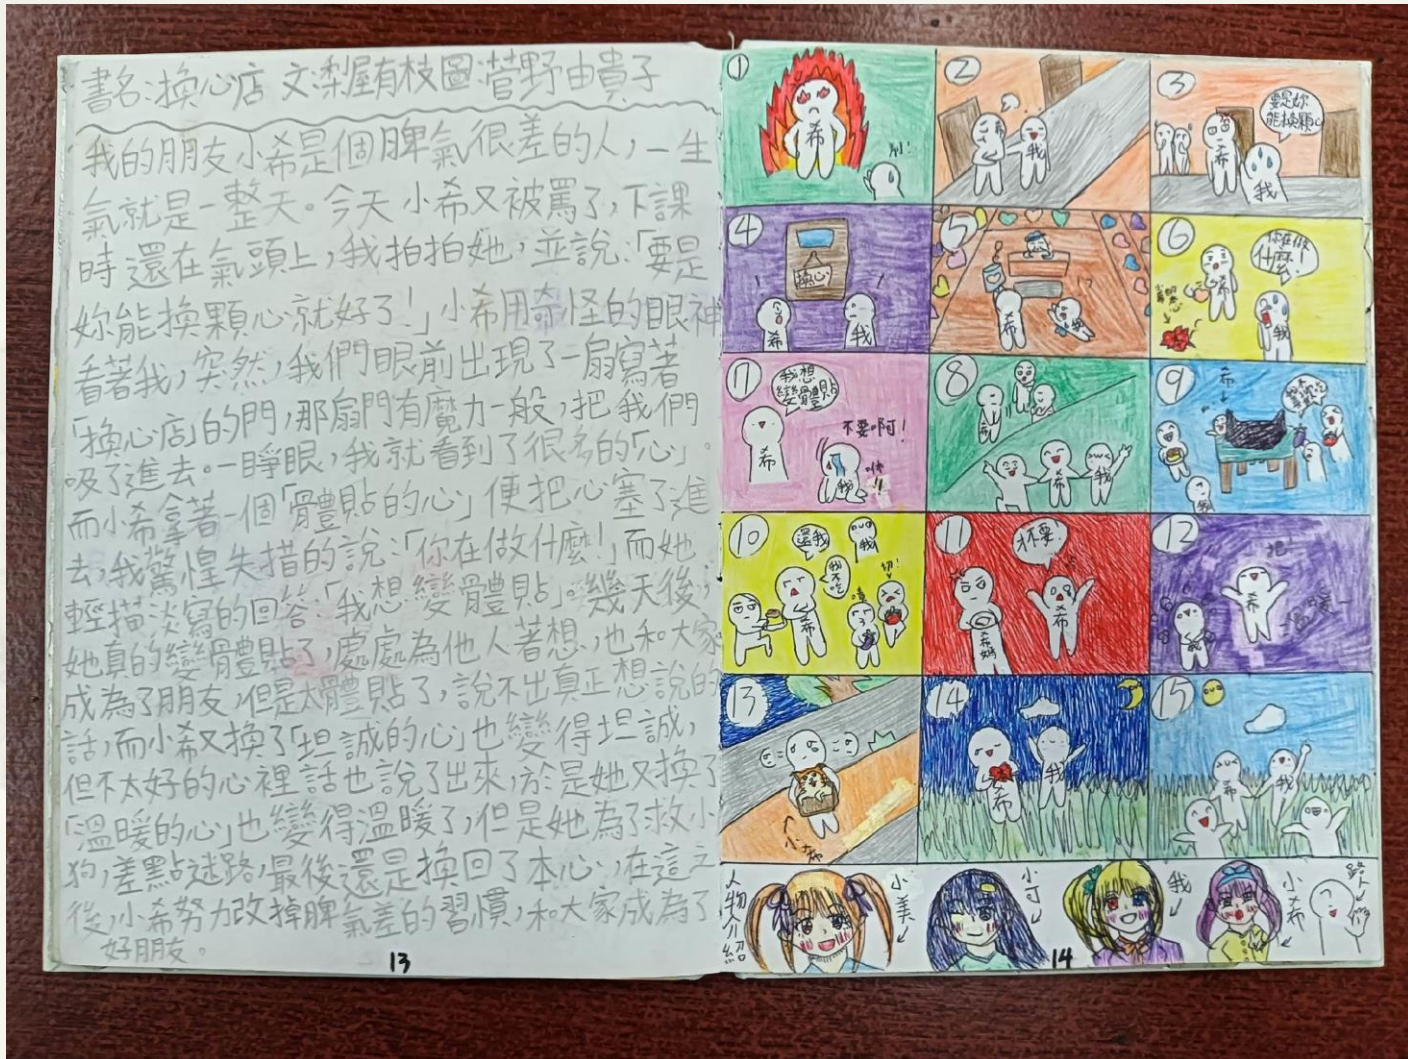 書名:換心店 文:梨屋有枝圖:菅野由貴子
我的朋友小希是個脾氣很差的人,一生
氣就是一整天。今天小希又被罵了,下課
時還在氣頭上,我拍拍她,並說:「要是
妳能換顆心就好了!」小希用奇怪的眼神
看著我,突然,我們眼前出現了一扇寫著
「換心店」的門,那扇門有魔力一般,把我們
吸了進去。一睜眼,我就看到了很多的「心」。
而小希拿著一個「體貼的心」便把心塞了進
去,我驚惶失措的說:「你在做什麼!」而她
輕描淡寫的回答:「我想變體貼」。幾天後,
她真的變體貼了,處處為他人著想,也和大家
成為了朋友,但是太體貼了,說不出真正想說的
話,而小希又換了「坦誠的心」也變得坦誠,
但不太好的心裡話也說了出來,於是她又換了
「溫暖的心」也變得溫暖了,但是她為了救小
狗,差點迷路,最後還是換回了本心,在這之
後,小希努力改掉脾氣差的習慣,和大家成為了
好朋友。
13
1
希
2
希
我
3
要是妳
能換顆心
希
我
4
換心
希
我
5
希
我
6
你在做
什麼!
希
我
7
我想
變體貼
希
不要啊!
我
8
希
我
9
希
10
還我
我
我不吃
希
11
不要!
希媽
希
12
希
我
13
小希
14
希
我
15
希
我
人物介紹
小美
小可
我
小希
路人
14